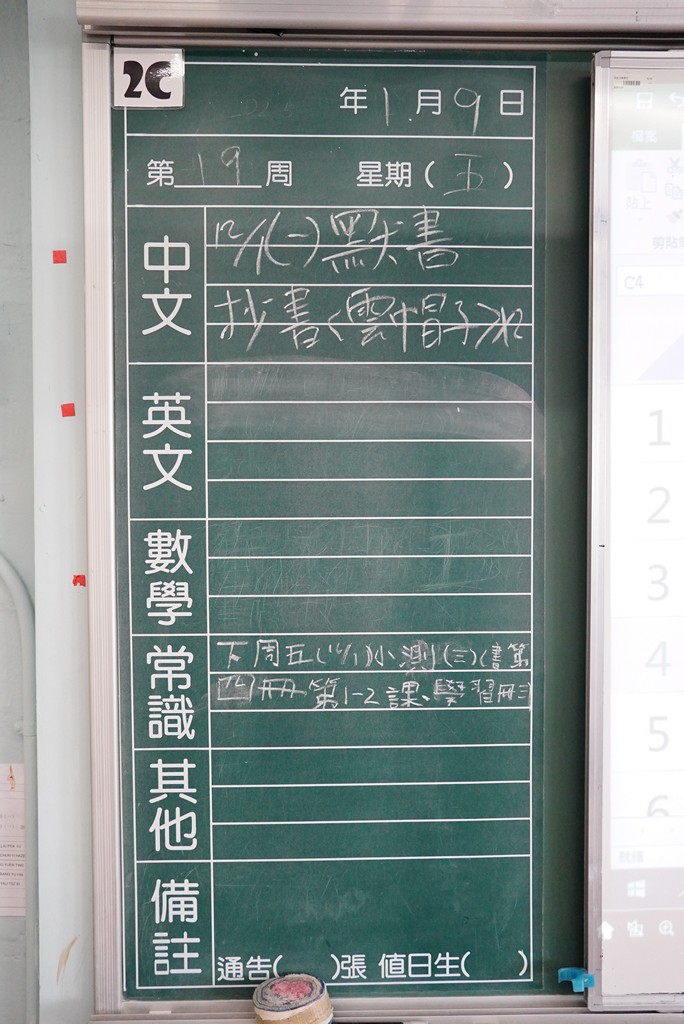 2C
年1月9日
第19周 星期(五)
中文
12/1(一)默書
抄書<雲中帽子>
英文
數學
常識
下周五(16/1)小測(三)(書第
四冊第1-2課、學習冊)
其他
備註
通告( )張 值日生( )
C4
1
2
3
4
5
6